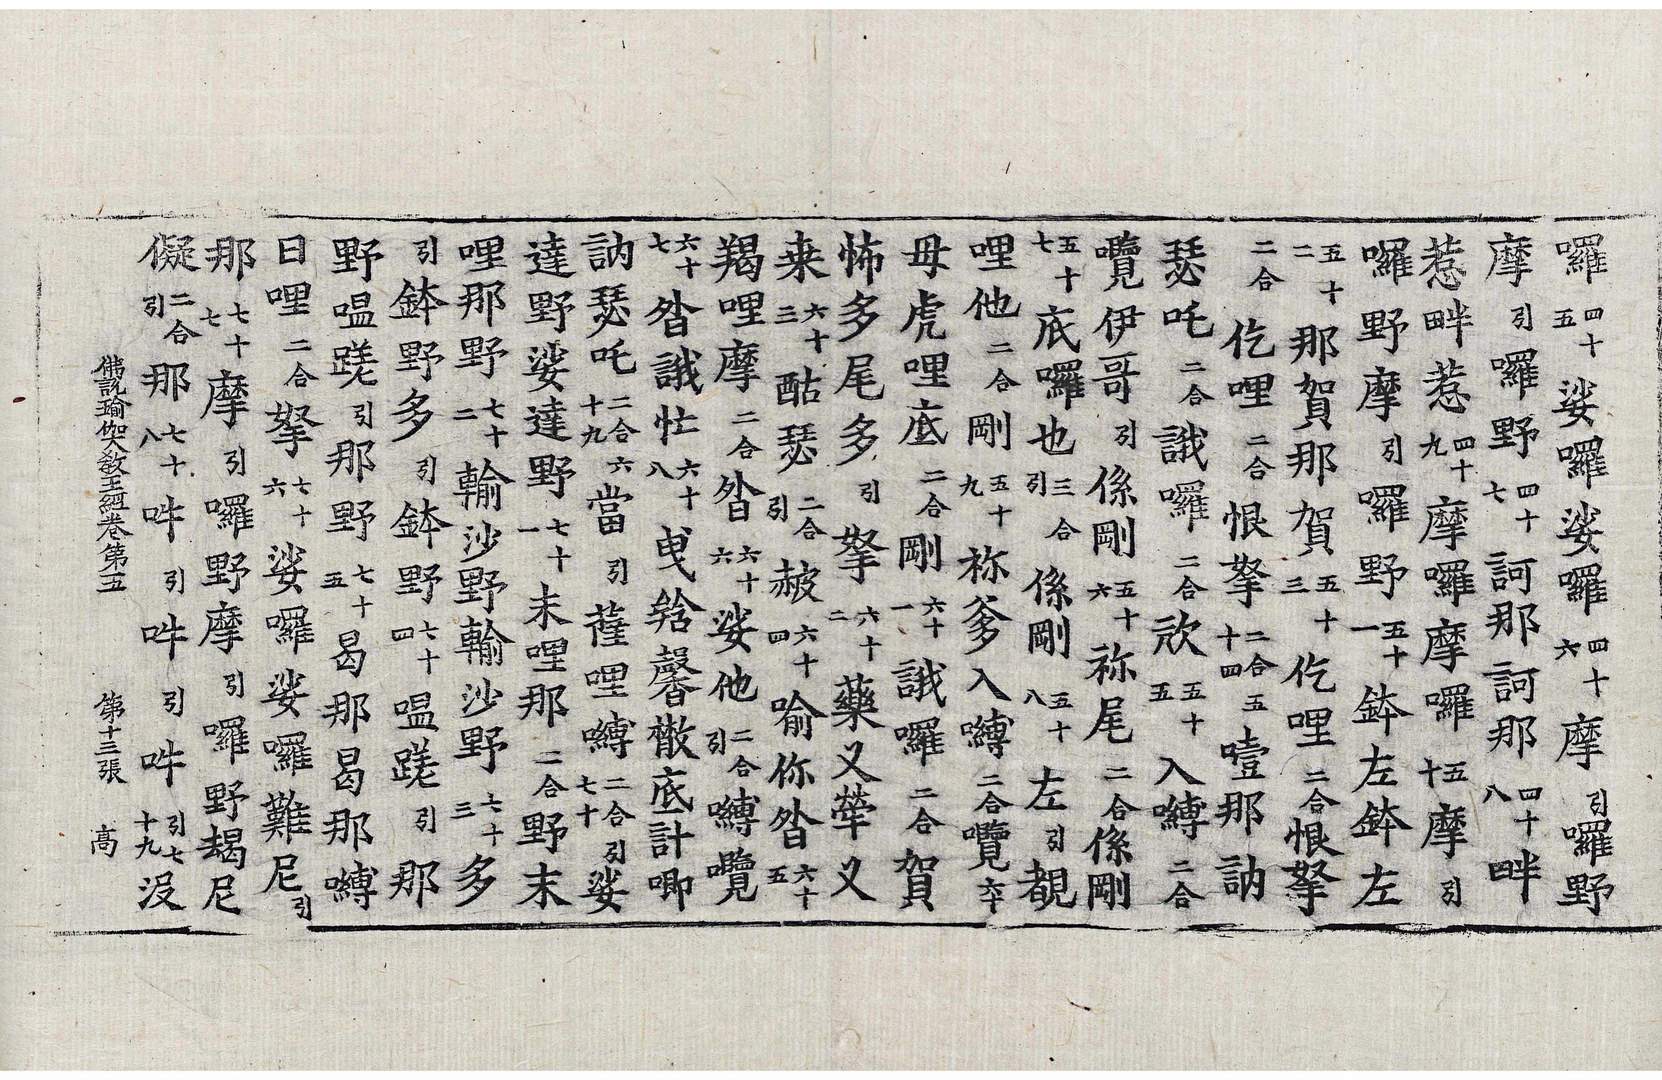 囉四十五娑囉娑囉四十六摩引囉野
摩引囉野四十七訶那訶那四十八畔
惹畔惹四十九摩囉摩囉五十摩引
囉野摩引囉野五十一鉢左鉢左
五十二那賀那賀五十三仡哩二合恨拏
二合仡哩二合恨拏二合五十四壹那訥
瑟吒二合誐囉二合欻五十五入嚩二合
囕伊哥引係剛五十六祢尾二合係剛
五十七底囉也三合引係剛五十八左引覩
哩他二合剛五十九祢爹入嚩二合囕六十
毋虎哩底二合剛六十一誐囉二合賀
怖多尾多引拏六十二藥叉犖叉
来六十三酤瑟二合引赦六十四喻你昝六十五
羯哩摩二合昝六十六娑他二合引嚩囕
六十七昝誐忙六十八曵䤈馨撒底計唧
訥瑟吒二合六十九當引薩哩嚩二合引七十娑
達野娑達野七十一未哩那二合野末
哩那野七十二輸沙野輸沙野六十三多
引鉢野多引鉢野七十四嗢蹉引那
野嗢蹉引那野七十五曷那曷那嚩
日哩二合拏七十六娑囉娑囉難尼引
那七十七摩引囉野摩引囉野朅尼
儗二合引那七十八吽引吽引吽引七十九没
佛說瑜伽大教王經卷第五 第十三張 高